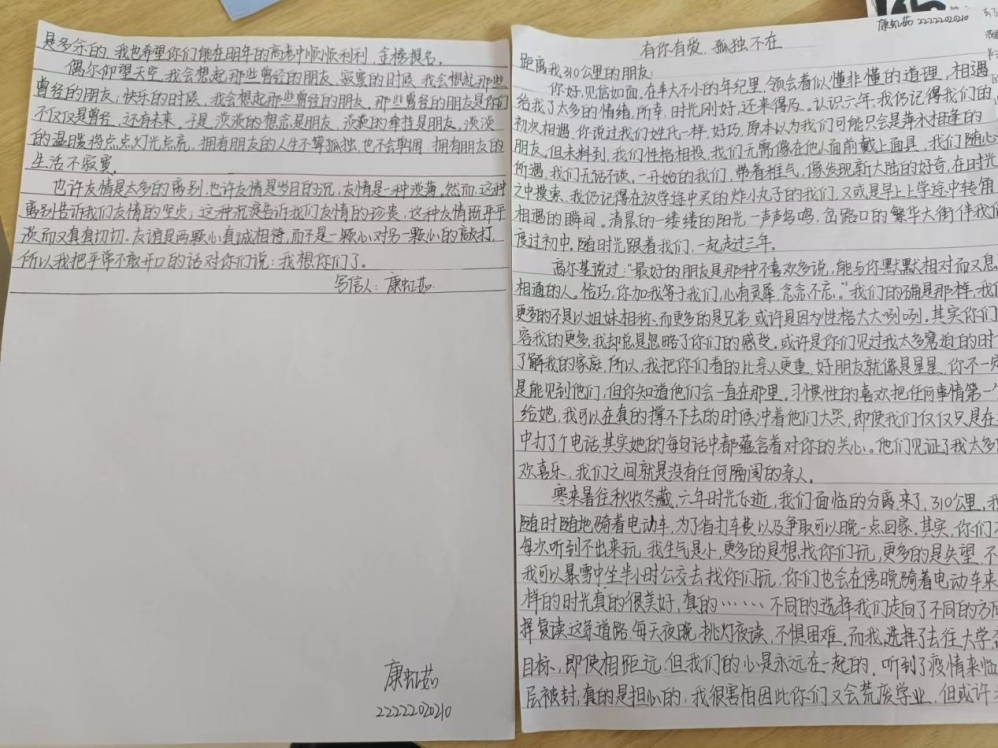 康虹茹 22222020210
有你有爱，孤独不在
距离我310公里的朋友：
你好，见信如面，在半大不小的年纪里，领会看似懂非懂的道理，相遇
给我了太多的情绪，所幸，时光刚好，还来得及。认识六年，我仍记得我们的
初次相遇，你说过我们姓氏一样，好巧，原本以为我们可能只会是萍水相逢的
朋友，但未料到，我们性格相投，我们无需像在他人面前戴上面具，我们随心
所遇，我们无话不谈，一开始的我们，带着稚气，像发现新大陆的好奇，在时光
之中搜索，我仍记得在放学途中买的炸小丸子的我们，又或是早上学途中转角
相遇的瞬间。清晨的一缕缕的阳光，一声声鸟鸣，岔路口的繁华大街伴我们
度过初中，随时光跟着我们，一起走过三年。
高尔基说过："最好的朋友是那种不喜欢多说，能与你默默相对而又息
相通的人。恰巧，你加我等于我们，心有灵犀，念念不忘。"我们的确是那样，我们
更多的不是以姐妹相称，而更多的是兄弟，或许是因为性格大大咧咧。其实你们
容我的更多，我却总是忽略了你们的感受，或许是你们见过我太多窘迫的时
了解我的家庭，所以，我把你们看的比亲人更重，好朋友就像是星星，你不一定
是能见到他们，但你知道他们会一直在那里。习惯性的喜欢把任何事情第一个
给她，我可以在真的撑不下去的时候冲着他们大哭，即使我们仅仅只是在
中打了个电话，其实她的每句话中都蕴含着对你的关心。他们见证了我太多的
欢喜乐，我们之间就是没有任何隔阂的亲人。
寒来暑往秋收冬藏，六年时光飞逝，我们面临的分离，来了，310公里，我
随时随地骑着电动车，为了省打车费以及争取可以晚一点回家。其实，你们
每次听到不出来玩，我生气是小，更多的是想找你们玩，更多的是失望，不
我可以暴雪中坐半小时公交去找你们玩，你们也会在傍晚骑着电动车来
样的时光真的很美好，真的……不同的选择我们走向了不同的方向
择复读这条道路，每天夜晚，挑灯夜读，不惧困难，而我，选择了去往大学
目标，即使相距远，但我们的心是永远在一起的，听到了疫情来临
层被封，真的是担心的，我很害怕因此你们又会荒废学业，但或许
是多余的，我也希望你们能在明年的高考中顺顺利利，金榜提名。
偶尔仰望天空，我会想起那些曾经的朋友，寂寞的时候，我会想起那些
曾经的朋友；快乐的时候，我会想起那些曾经的朋友，那些曾经的朋友是你们
不仅仅是曾经，还有未来。于是，淡淡的想念是朋友，淡淡的牵挂是朋友。淡淡
的温暖将点点灯光点亮，拥有朋友的人生不算孤独，也不会单调，拥有朋友的
生活不寂寞。
也许友情是太多的离别，也许友情是岁月的沉，友情是一种淡薄。然而，这种
离别告诉我们友情的坚贞，这种沉淀告诉我们友情的珍贵，这种友情既平平
淡而又真真切切。友谊是两颗心真诚相待，而不是一颗心对另一颗心的敲打，
所以我把平常不敢开口的话对你们说：我想你们了。
写信人：康虹茹
康虹茹
22222020210